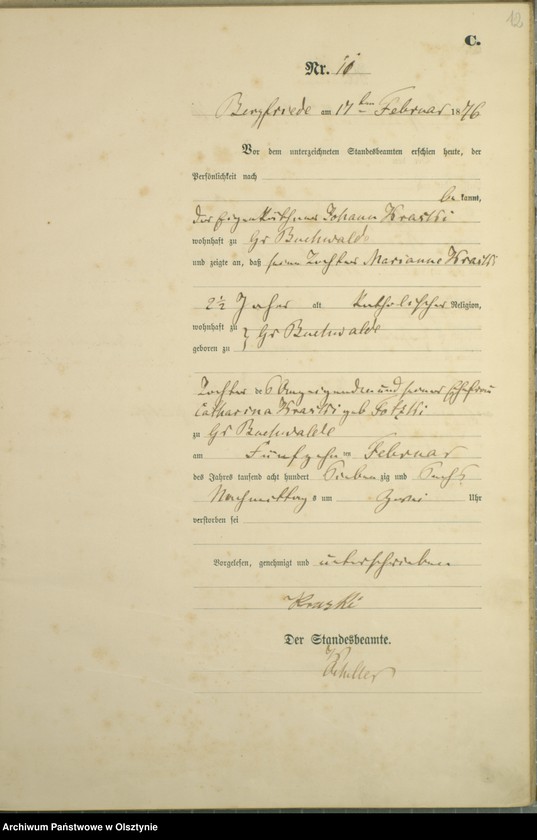 12
C.
Nr. 10
Bergfriede am 17ten Februar 1876
Vor dem unterzeichneten Standesbeamten erschien heute, der
Persönlichkeit nach
be kannt,
der Eigenkäthner Johann Kraski
wohnhaft zu Gr Buchwalde
und zeigte an, daß seine Tochter Marianne Kraski
2½ Jahr alt katholischer Religion,
wohnhaft zu
geboren zu } Gr Buchwalde
Tochter des Anzeigenden und seiner Ehefrau
Catharina Kraski geb
zu Gr Buchwalde
am Fünfzehn ten Februar
des Jahres tausend acht hundert Sieben zig und Sechs
Nachmittags um Zwei Uhr
verstorben sei
Vorgelesen, genehmigt und unterschrieben
Kraski
Der Standesbeamte.
Archiwum Państwowe w Olsztynie